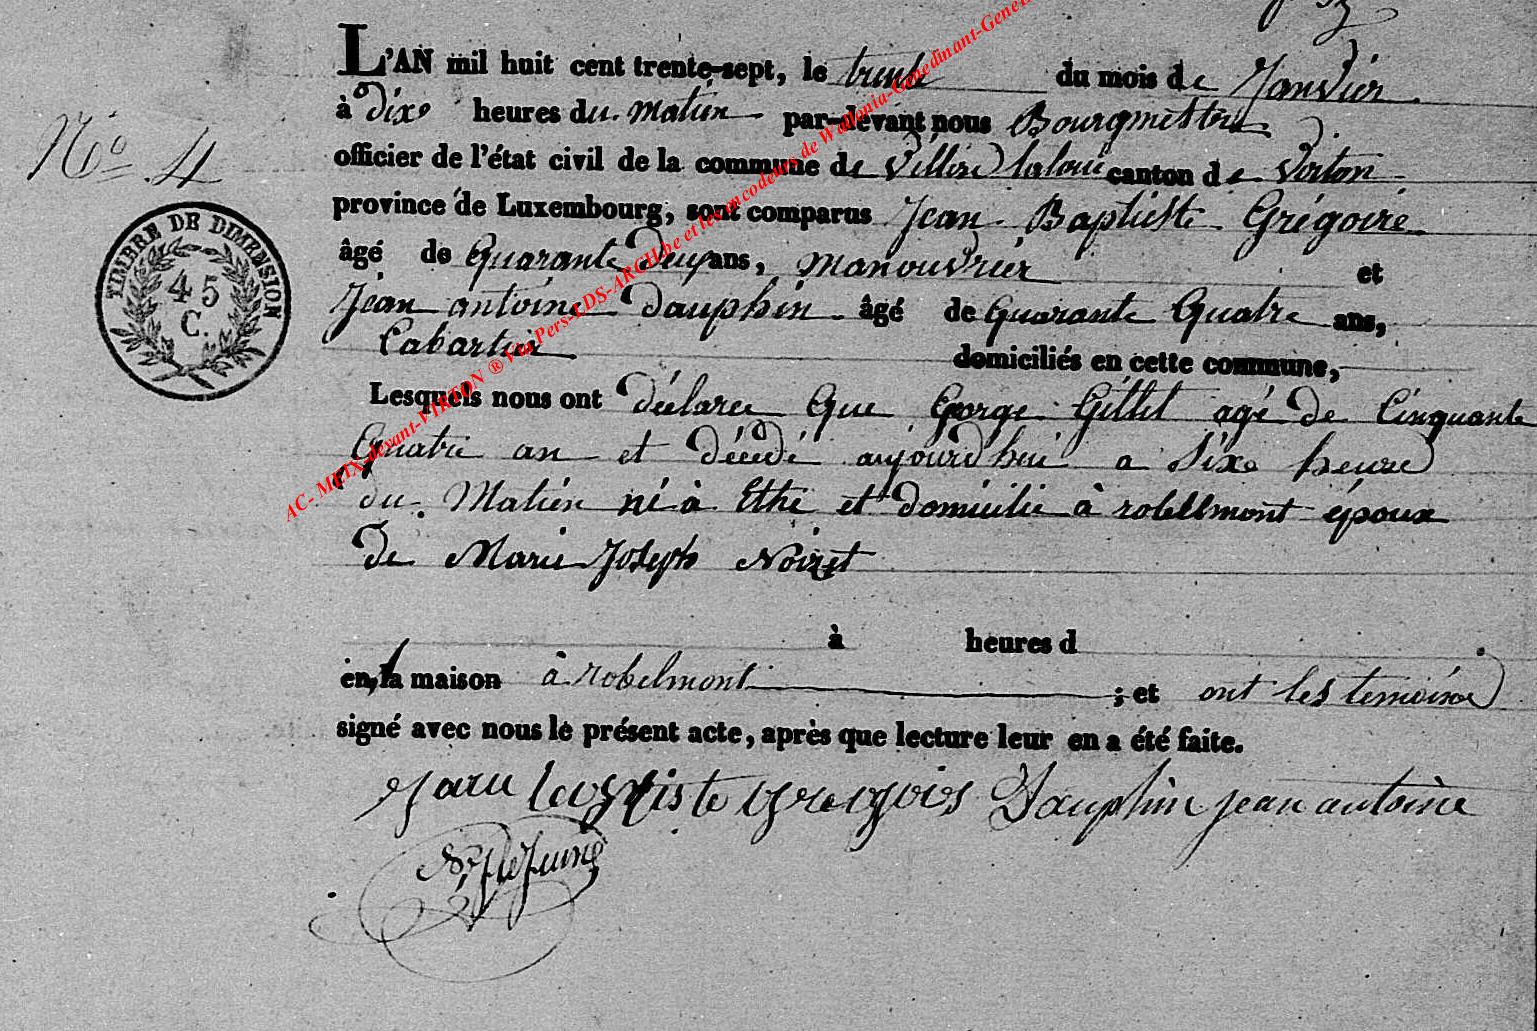 N° 4
TIMBRE DE DIMENSION
45
C.
L'AN mil huit cent trente-sept, le trente du mois de Janvier
à dixe heures du matin par-devant nous Bourgmestre
officier de l'état civil de la commune de Villere laloue canton de Virton
province de Luxembourg, sont comparus Jean Baptiste Grégoire
âgé de Quarante Deux ans, manouvrier et
Jean antoine Dauphin âgé de Quarante Quatre ans,
Cabartier domiciliés en cette commune,
Lesquels nous ont déclaree Que George Gillet agé de Cinquante
Quatre an et décédé aujourd'hui a sixe heure
du Matin né à Ethe et domicilie à robelmont époux
De Marie Joseph Noizet
à heures d
en la maison à robelmont ; et ont les temoine
signé avec nous le présent acte, après que lecture leur en a été faite.
Jean baptiste Gregoire Dauphin jean antoine
AC- MEIX-devant-VIRTON ® Via Pers-LDS-ARCH.be et les encodeurs de Wallonia-Genedinant-Gene